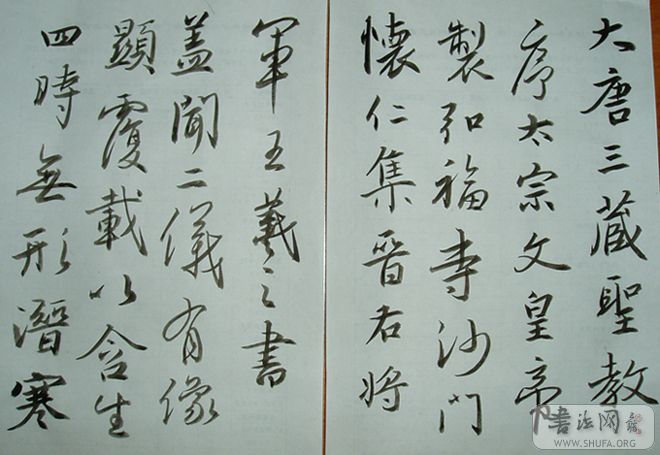 大唐三藏聖教
序太宗文皇帝
製弘福寺沙門
懷仁集晉右將
軍王羲之書
盖聞二儀有像
顯覆載以含生
四時無形潛寒
書法网
WWW.SHUFA.ORG